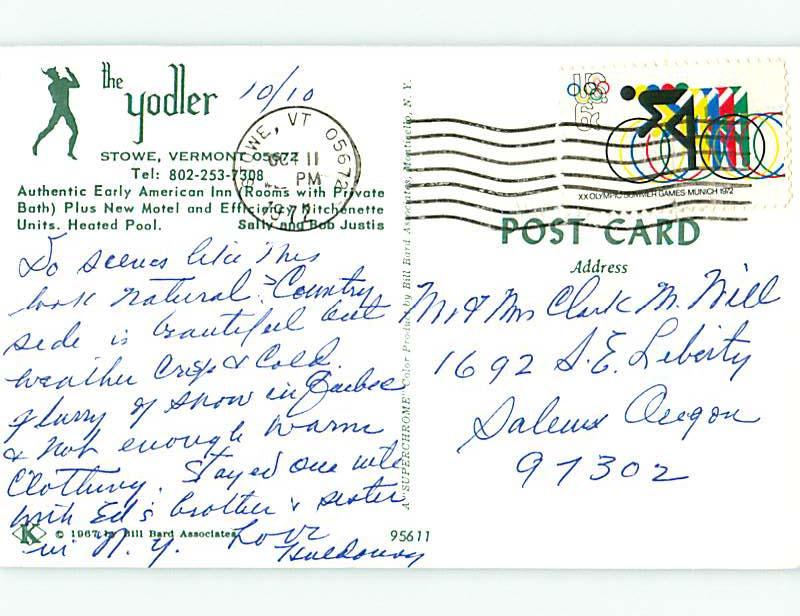 the
yodler
10/10
STOWE, VERMONT 05672
Tel: 802-253-7308
Authentic Early American Inn (Rooms with Private
Bath) Plus New Motel and Efficiency Kitchenette
Units. Heated Pool. Sally and Bob Justis
STOWE, VT 05672
OCT 11
PM
1972
Do scenes like this
look natural? Country
side is beautiful but
weather crisp & cold.
flurry of snow in Quebec
& not enough warm
clothing. Stayed one nite
with Ed's brother & sister
in N.Y. Love
© 1967 by Bill Bard Associates
K
95611
A "SUPERCHROME" Color Product by Bill Bard Associates, Monticello, N. Y.
US
8c
XX OLYMPIC SUMMER GAMES MUNICH 1972
POST CARD
Address
Mr & Mrs Clark M. Will
1692 S.E. Liberty
Salem Oregon
97302